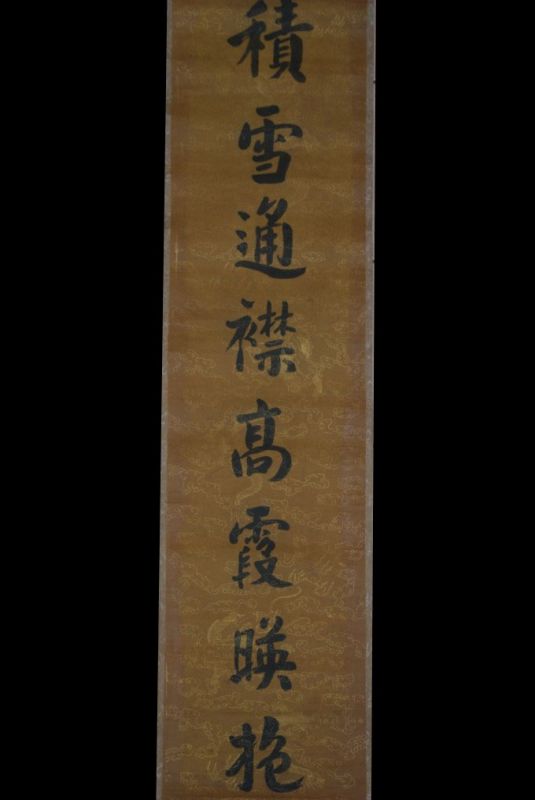 積雪通襟高霞暎抱